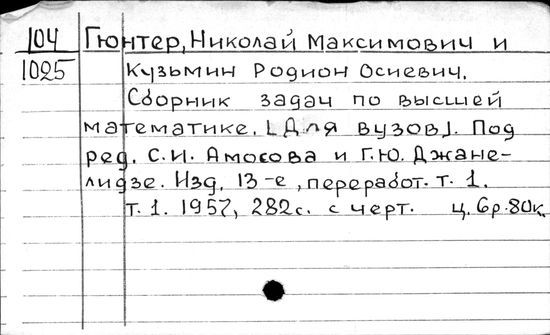 104 Гюнтер, Николай Максимович и
1025 Кузьмин Родион Осиевич.
Сборник задач по высшей
математике. [Для вузов]. Под
ред. С.И. Амосова и Г.Ю. Джане-
лидзе. Изд. 13-е, переработ. т. 1.
т. 1. 1957, 282с. с черт. ц. 6р. 80к.